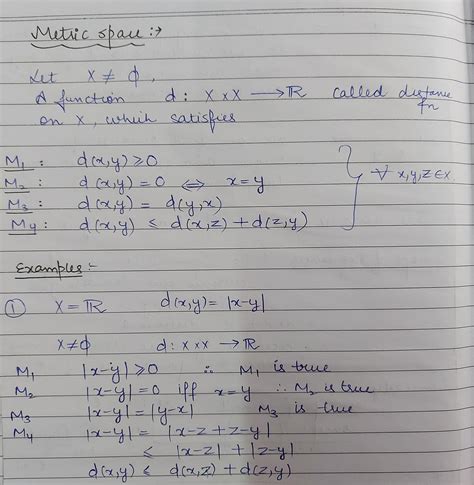 Metric space :→
Let X ≠ ϕ,
A function d : X×X → ℝ called distance fn
on X, which satisfies
M₁ : d(x,y) ≥ 0
M₂ : d(x,y) = 0 ⇔ x=y
M₃ : d(x,y) = d(y,x)
M₄ : d(x,y) ≤ d(x,z) + d(z,y)
} ∀ x,y,z ∈ X
Examples :-
① X = ℝ d(x,y) = |x-y|
X≠ϕ d : X×X → ℝ
M₁ |x-y| ≥ 0 ∴ M₁ is true
M₂ |x-y| = 0 iff x=y ∴ M₂ is true
M₃ |x-y| = |y-x| M₃ is true
M₄ |x-y| = |x-z+z-y|
≤ |x-z| + |z-y|
d(x,y) ≤ d(x,z) + d(z,y)